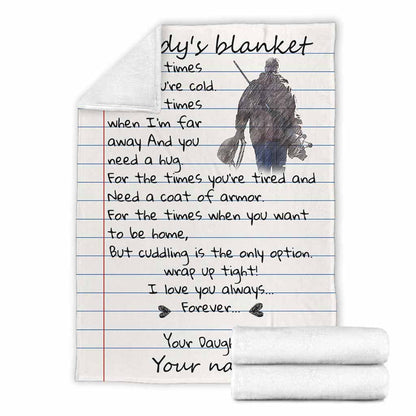 dy's blanket
times
're cold.
times
when I'm far
away And you
need a hug.
For the times you're tired and
Need a coat of armor.
For the times when you want
to be home,
But cuddling is the only option.
wrap up tight!
I love you always...
Forever...
Your Daugh
Your na